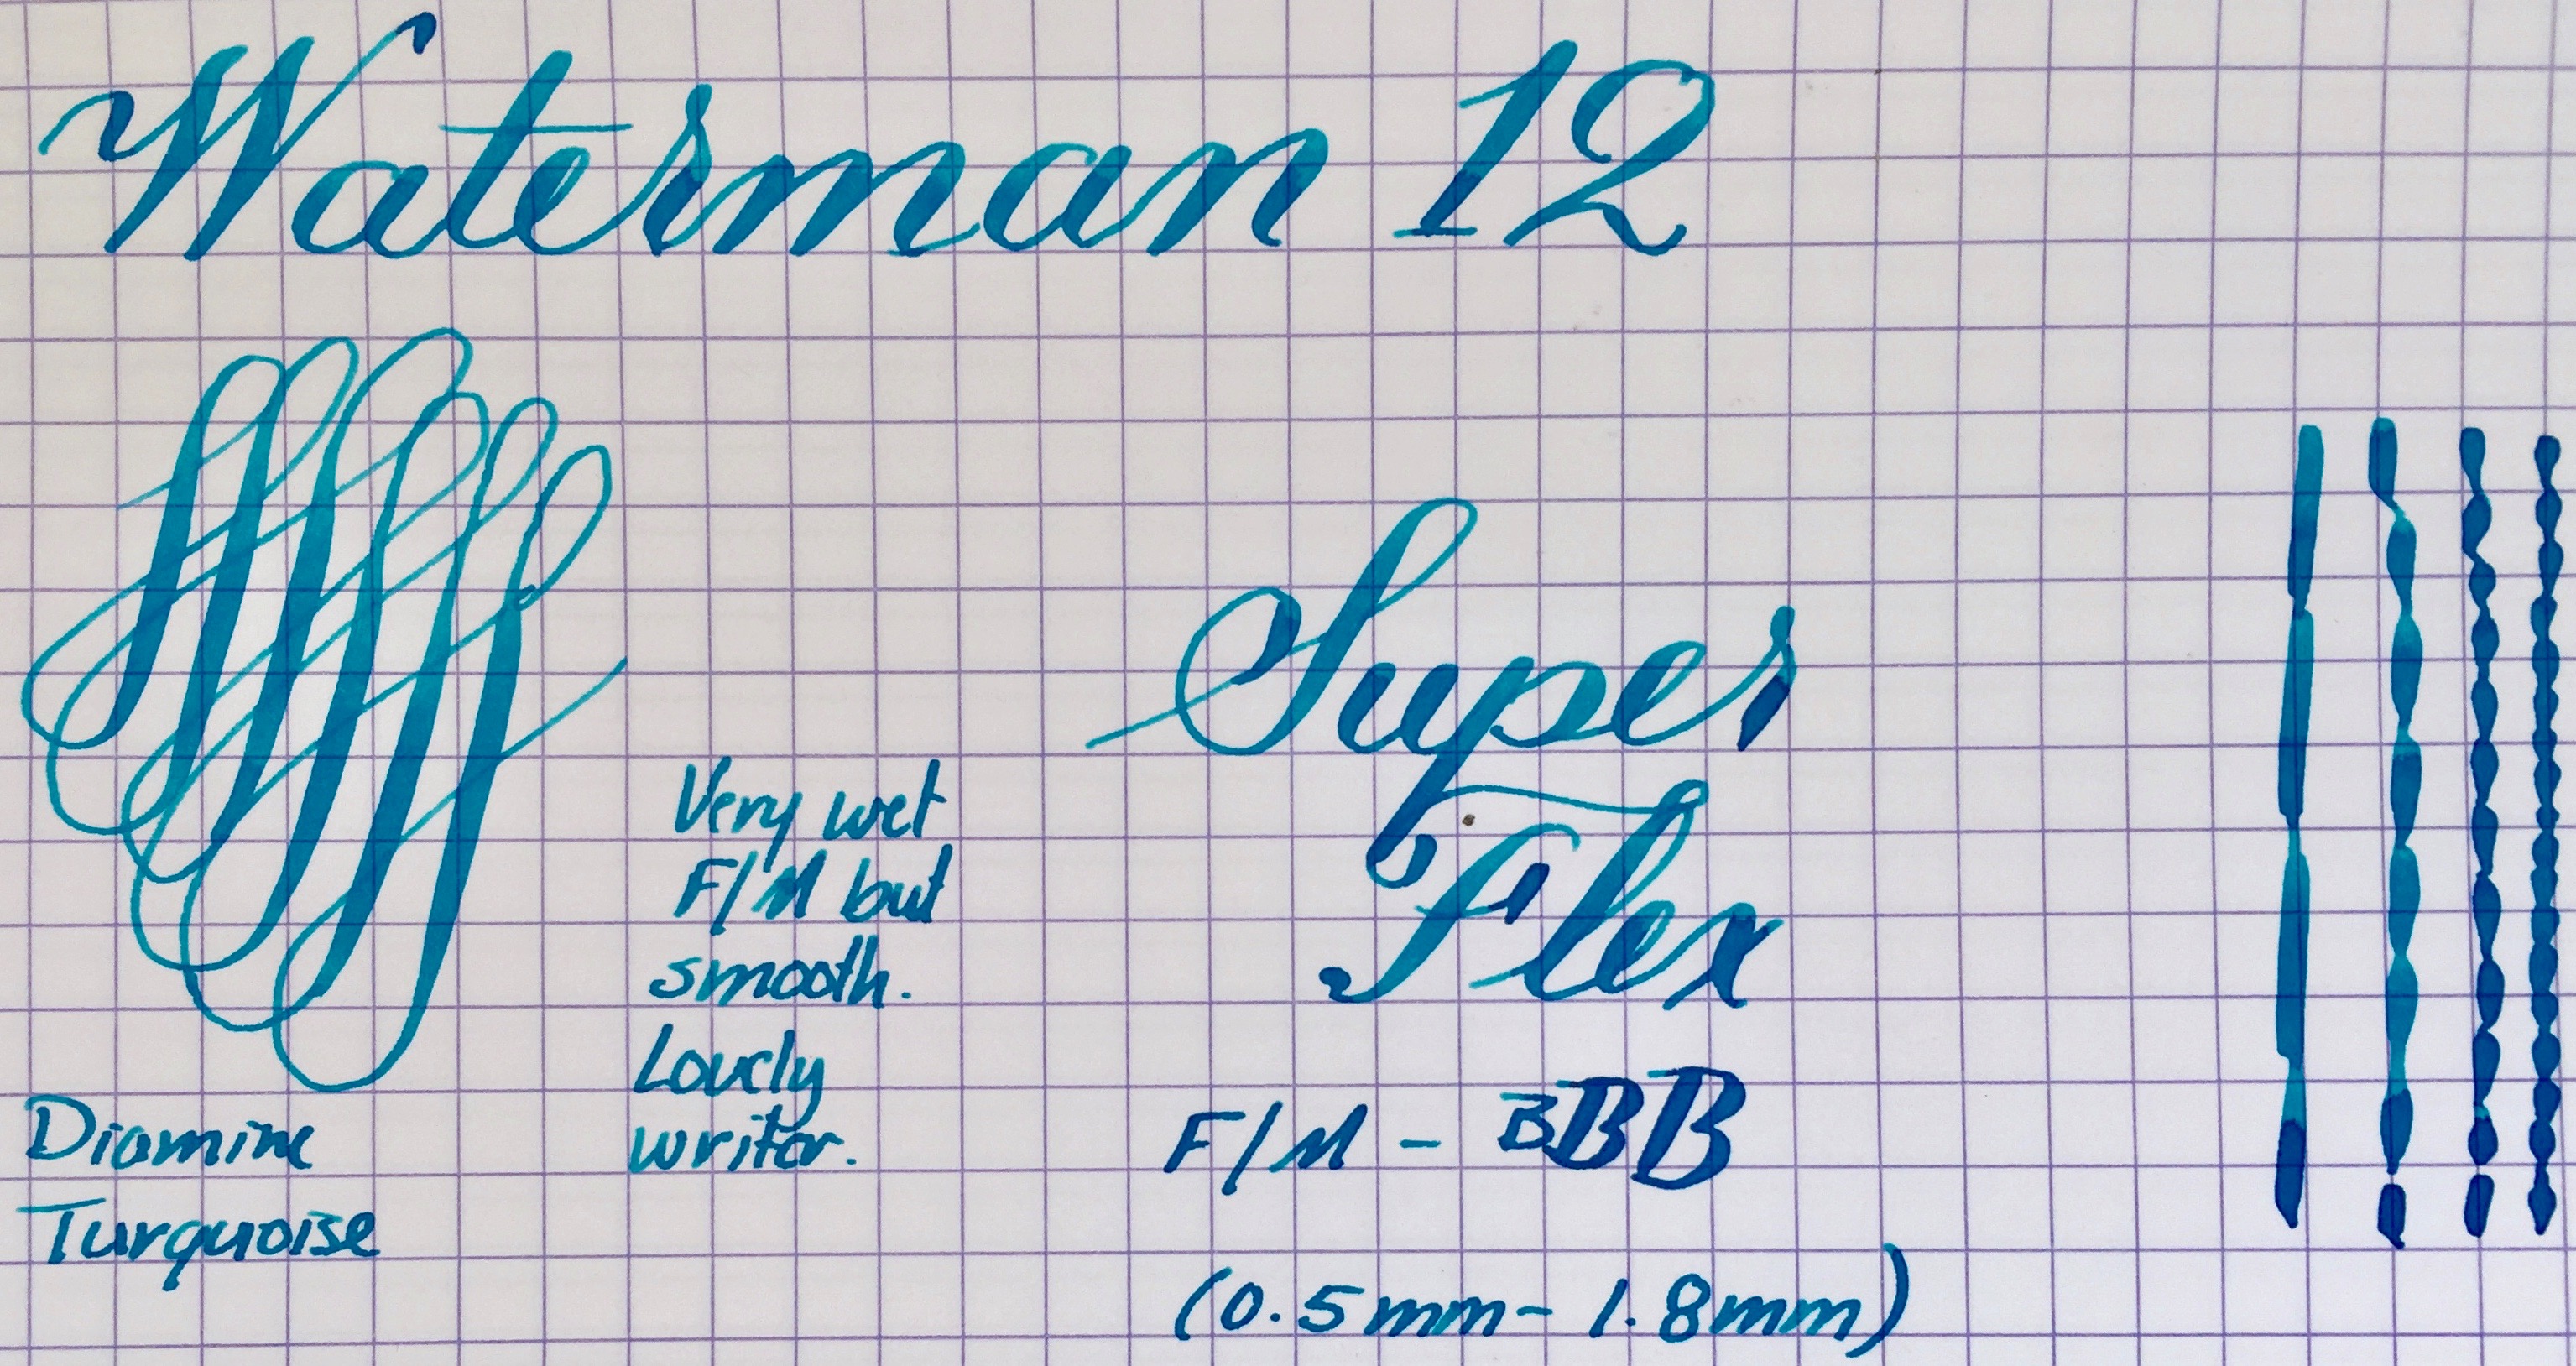 Waterman 12
Super
Flex
Very wet
F/M but
smooth.
Lovely
writer.
Diamine
Turquoise
F/M - BBB
(0.5mm - 1.8mm)